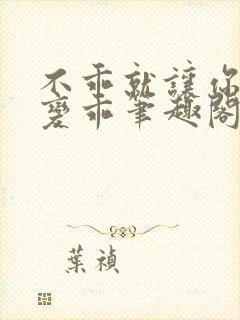 不乖就讓你
變乖筆趣閣
葉禎